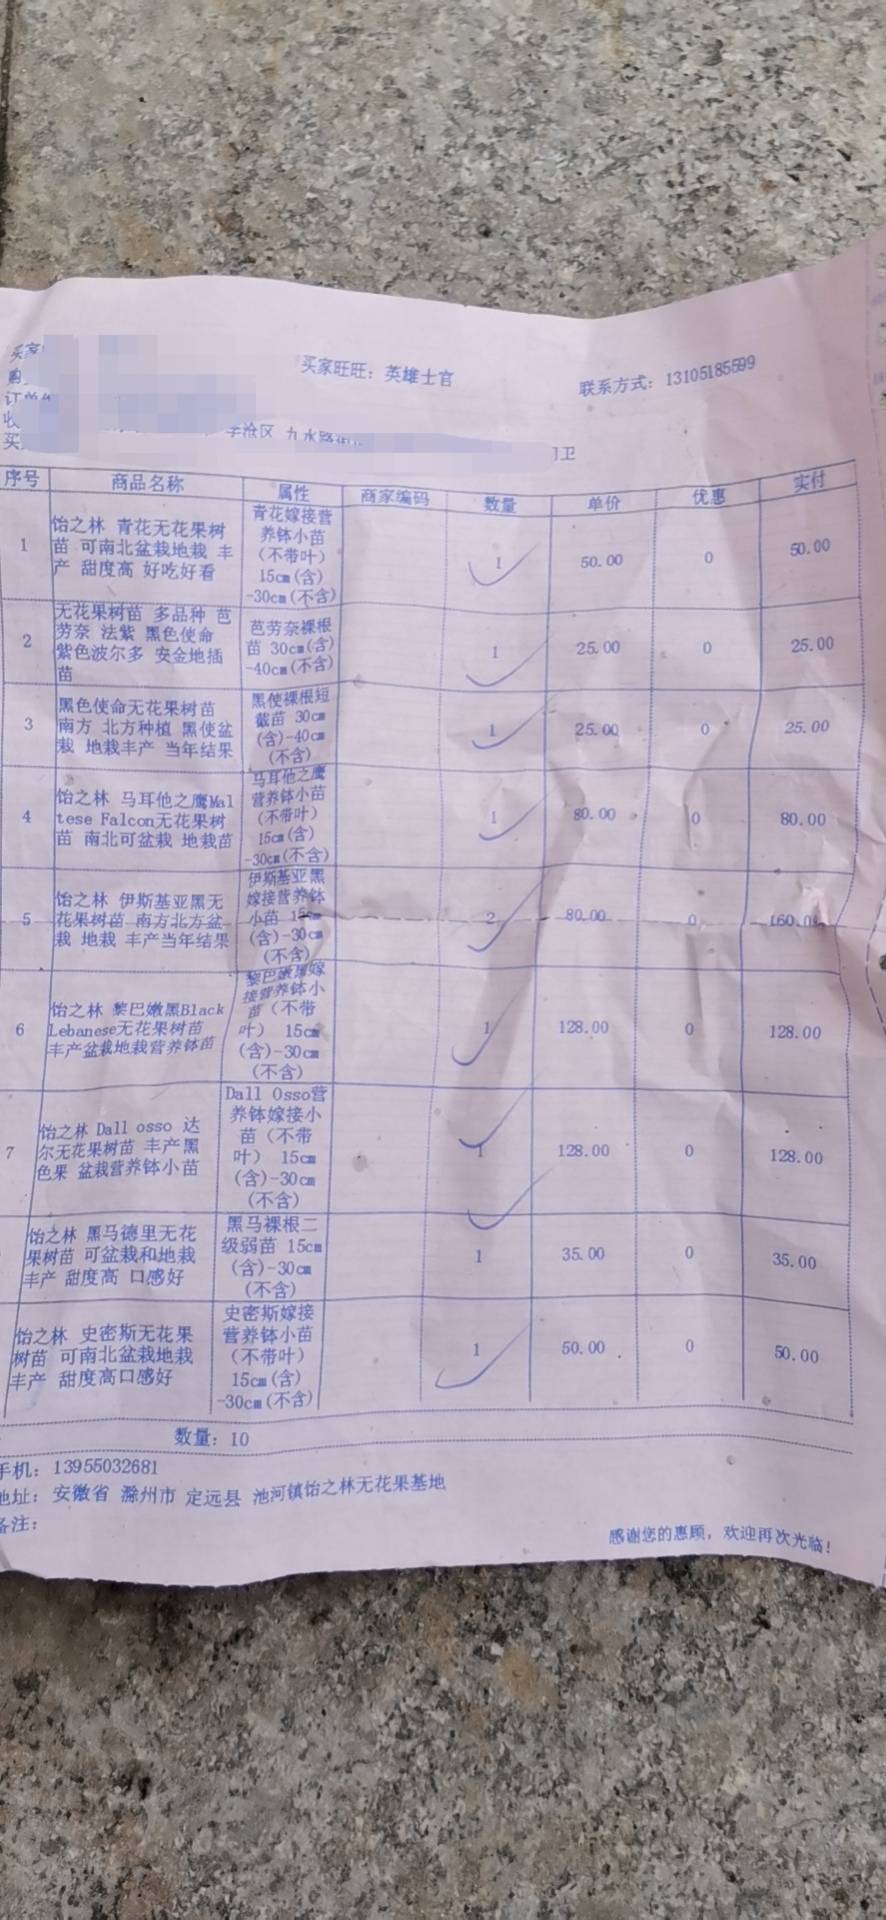 买家
买家旺旺：英雄士官
联系方式：13105185599
李沧区 九水路街
门卫
序号 商品名称 属性 商家编码 数量 单价 优惠 实付
1
饴之林 青花无花果树
苗 可南北盆栽地栽 丰
产 甜度高 好吃好看
青花嫁接营
养钵小苗
（不带叶）
15cm(含)
-30cm(不含)
1 50.00 0 50.00
2
无花果树苗 多品种 芭
劳奈 法紫 黑色使命
紫色波尔多 安金地插
苗
芭劳奈裸根
苗 30cm(含)
-40cm(不含)
1 25.00 0 25.00
3
黑色使命无花果树苗
南方 北方种植 黑使盆
栽 地栽丰产 当年结果
黑使裸根短
截苗 30cm
(含)-40cm
(不含)
1 25.00 0 25.00
4
饴之林 马耳他之鹰Mal
tese Falcon无花果树
苗 南北可盆栽 地栽苗
马耳他之鹰
营养钵小苗
（不带叶）
15cm(含)
-30cm(不含)
1 80.00 0 80.00
5
饴之林 伊斯基亚黑无
花果树苗 南方北方盆
栽 地栽 丰产当年结果
伊斯基亚黑
嫁接营养钵
小苗 15cm
(含)-30cm
(不含)
2 80.00 0 160.00
6
饴之林 黎巴嫩黑Black
Lebanese无花果树苗
丰产盆栽地栽营养钵苗
黎巴嫩黑嫁
接营养钵小
苗（不带
叶） 15cm
(含)-30cm
(不含)
1 128.00 0 128.00
7
饴之林 Dall osso 达
尔无花果树苗 丰产黑
色果 盆栽营养钵小苗
Dall Osso营
养钵嫁接小
苗（不带
叶） 15cm
(含)-30cm
(不含)
1 128.00 0 128.00
饴之林 黑马德里无花
果树苗 可盆栽和地栽
丰产 甜度高 口感好
黑马裸根二
级弱苗 15cm
(含)-30cm
(不含)
1 35.00 0 35.00
饴之林 史密斯无花果
树苗 可南北盆栽地栽
丰产 甜度高口感好
史密斯嫁接
营养钵小苗
（不带叶）
15cm(含)
-30cm(不含)
1 50.00 0 50.00
数量：10
手机：13955032681
地址：安徽省 滁州市 定远县 池河镇饴之林无花果基地
备注：
感谢您的惠顾，欢迎再次光临！